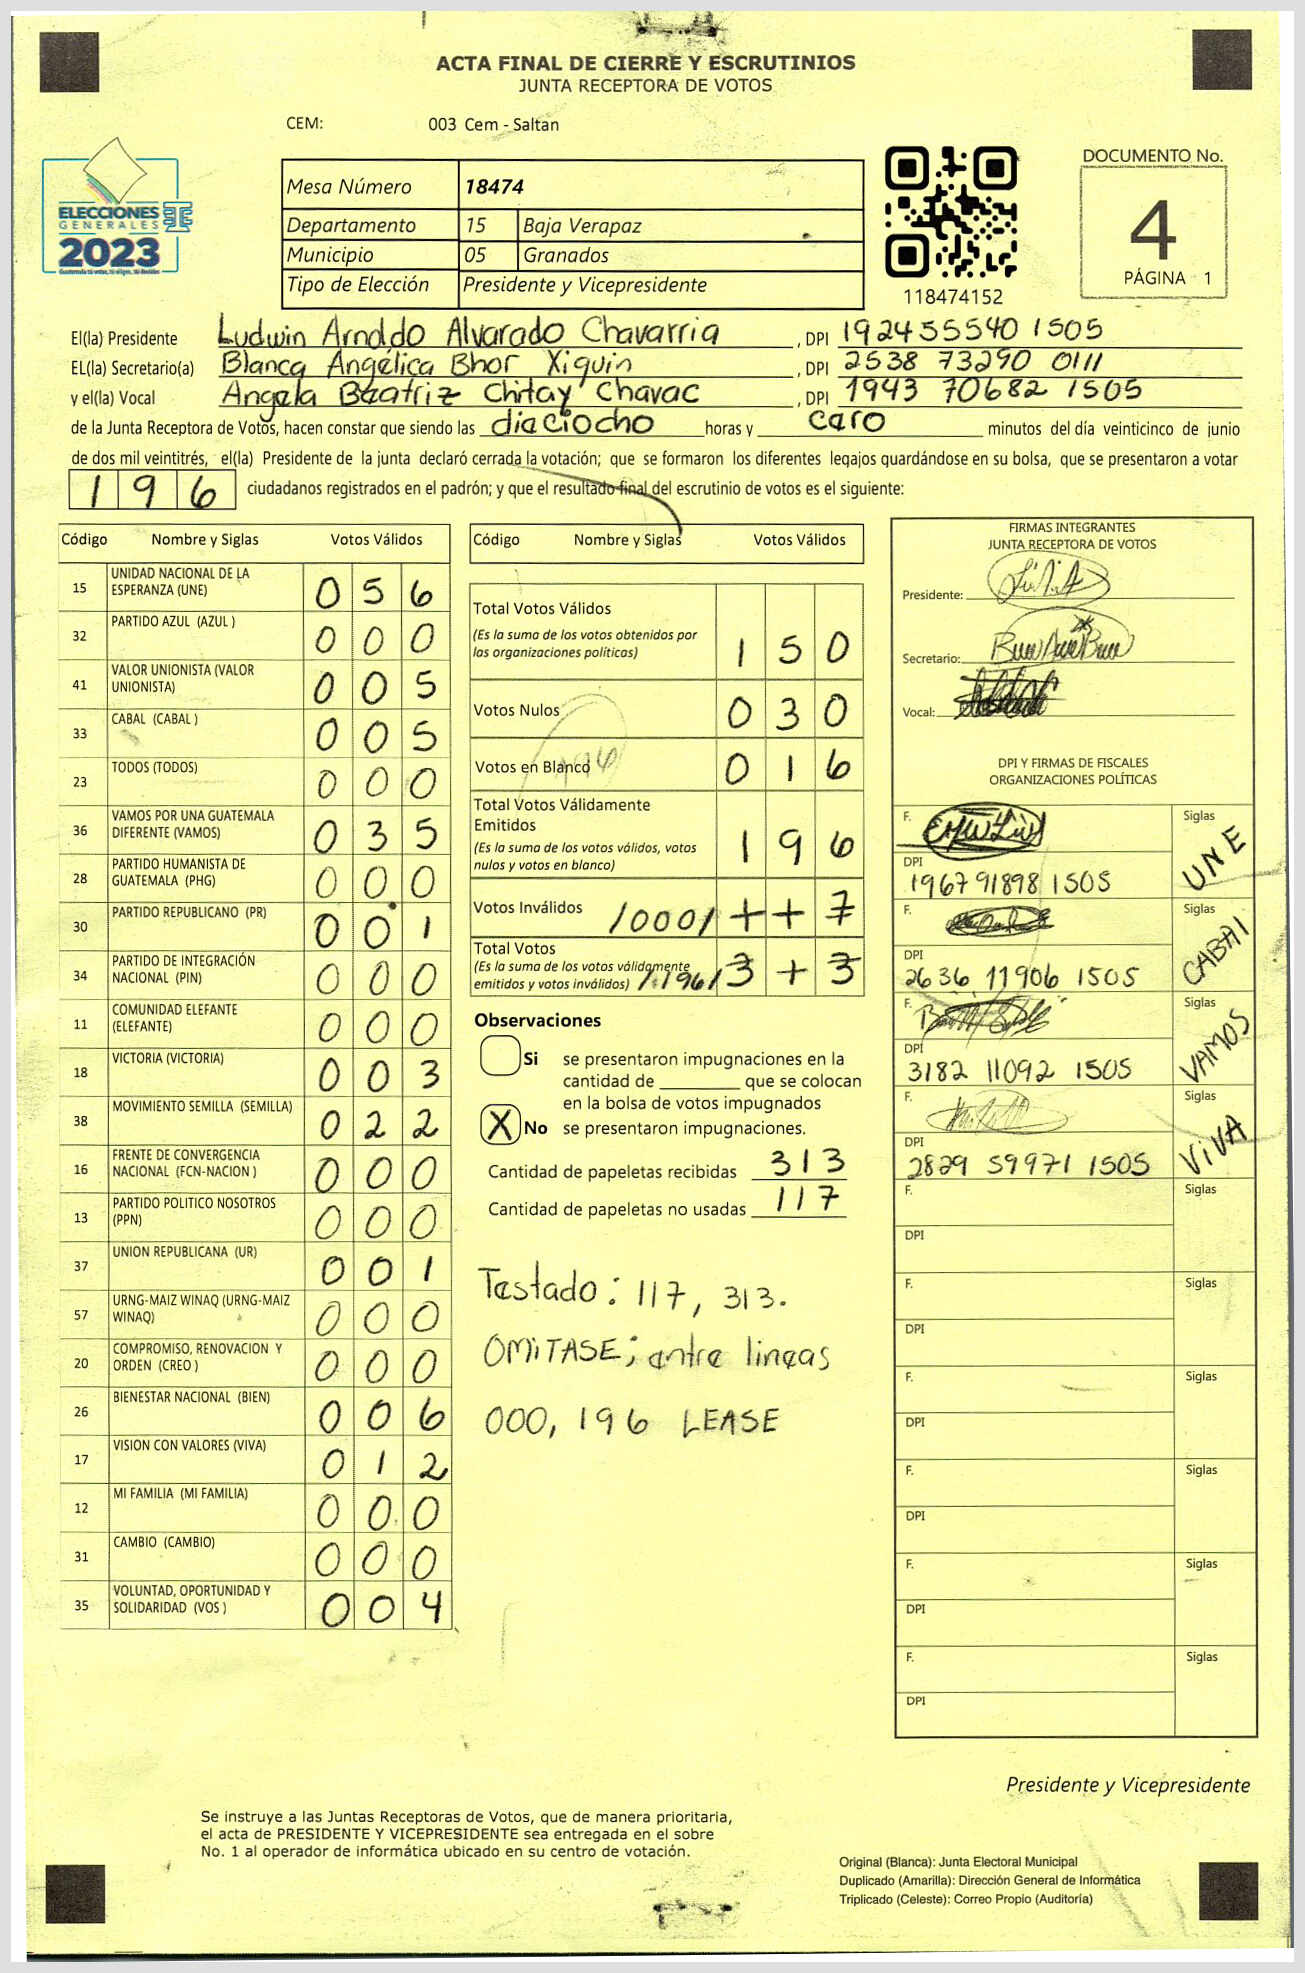 ACTA FINAL DE CIERRE Y ESCRUTINIOS
JUNTA RECEPTORA DE VOTOS
CEM: 003 Cem - Saltan
ELECCIONES
GENERALES
2023
Mesa Número 18474
Departamento 15 Baja Verapaz
Municipio 05 Granados
Tipo de Elección Presidente y Vicepresidente
118474152
DOCUMENTO No.
4
PÁGINA 1
El(la) Presidente Ludwin Arnoldo Alvarado Chavarria, DPI 192455540 1505
EL(la) Secretario(a) Blanca Angélica Bhor Xiquin, DPI 2538 73290 0111
y el(la) Vocal Angela Beatriz Chitay Chavac, DPI 1943 70682 1505
de la Junta Receptora de Votos, hacen constar que siendo las diaciocho horas y caro minutos del día veinticinco de junio
de dos mil veintitrés, el(la) Presidente de la junta declaró cerrada la votación; que se formaron los diferentes legajos guardándose en su bolsa, que se presentaron a votar
196 ciudadanos registrados en el padrón; y que el resultado final del escrutinio de votos es el siguiente:
Código Nombre y Siglas Votos Válidos
15 UNIDAD NACIONAL DE LA ESPERANZA (UNE) 056
32 PARTIDO AZUL (AZUL ) 000
41 VALOR UNIONISTA (VALOR UNIONISTA) 005
33 CABAL (CABAL ) 005
23 TODOS (TODOS) 000
36 VAMOS POR UNA GUATEMALA DIFERENTE (VAMOS) 035
28 PARTIDO HUMANISTA DE GUATEMALA (PHG) 000
30 PARTIDO REPUBLICANO (PR) 001
34 PARTIDO DE INTEGRACIÓN NACIONAL (PIN) 000
11 COMUNIDAD ELEFANTE (ELEFANTE) 000
18 VICTORIA (VICTORIA) 003
38 MOVIMIENTO SEMILLA (SEMILLA) 022
16 FRENTE DE CONVERGENCIA NACIONAL (FCN-NACION ) 000
13 PARTIDO POLITICO NOSOTROS (PPN) 000
37 UNION REPUBLICANA (UR) 001
57 URNG-MAIZ WINAQ (URNG-MAIZ WINAQ) 000
20 COMPROMISO, RENOVACION Y ORDEN (CREO ) 000
26 BIENESTAR NACIONAL (BIEN) 006
17 VISION CON VALORES (VIVA) 012
12 MI FAMILIA (MI FAMILIA) 000
31 CAMBIO (CAMBIO) 000
35 VOLUNTAD, OPORTUNIDAD Y SOLIDARIDAD (VOS ) 004
Código Nombre y Siglas Votos Válidos
Total Votos Válidos
(Es la suma de los votos obtenidos por
las organizaciones políticas) 150
Votos Nulos 030
Votos en Blanco 016
Total Votos Válidamente
Emitidos
(Es la suma de los votos válidos, votos
nulos y votos en blanco) 196
Votos Inválidos /000/ 117
Total Votos
(Es la suma de los votos válidamente
emitidos y votos inválidos) /196/ 313
Observaciones
Si se presentaron impugnaciones en la
cantidad de ________ que se colocan
en la bolsa de votos impugnados
X No se presentaron impugnaciones.
Cantidad de papeletas recibidas 313
Cantidad de papeletas no usadas 117
Testado: 117, 313.
OMITASE; entre lineas
000, 196 LEASE
FIRMAS INTEGRANTES
JUNTA RECEPTORA DE VOTOS
Presidente:
Secretario:
Vocal:
DPI Y FIRMAS DE FISCALES
ORGANIZACIONES POLÍTICAS
F. Siglas UNE
DPI 1967 91898 1505
F. Siglas CABAL
DPI 2636 11906 1505
F. Siglas VAMOS
DPI 3182 11092 1505
F. Siglas VIVA
DPI 2829 59971 1505
F. Siglas
DPI
F. Siglas
DPI
F. Siglas
DPI
F. Siglas
DPI
F. Siglas
DPI
F. Siglas
DPI
Presidente y Vicepresidente
Se instruye a las Juntas Receptoras de Votos, que de manera prioritaria,
el acta de PRESIDENTE Y VICEPRESIDENTE sea entregada en el sobre
No. 1 al operador de informática ubicado en su centro de votación.
Original (Blanca): Junta Electoral Municipal
Duplicado (Amarilla): Dirección General de Informática
Triplicado (Celeste): Correo Propio (Auditoría)